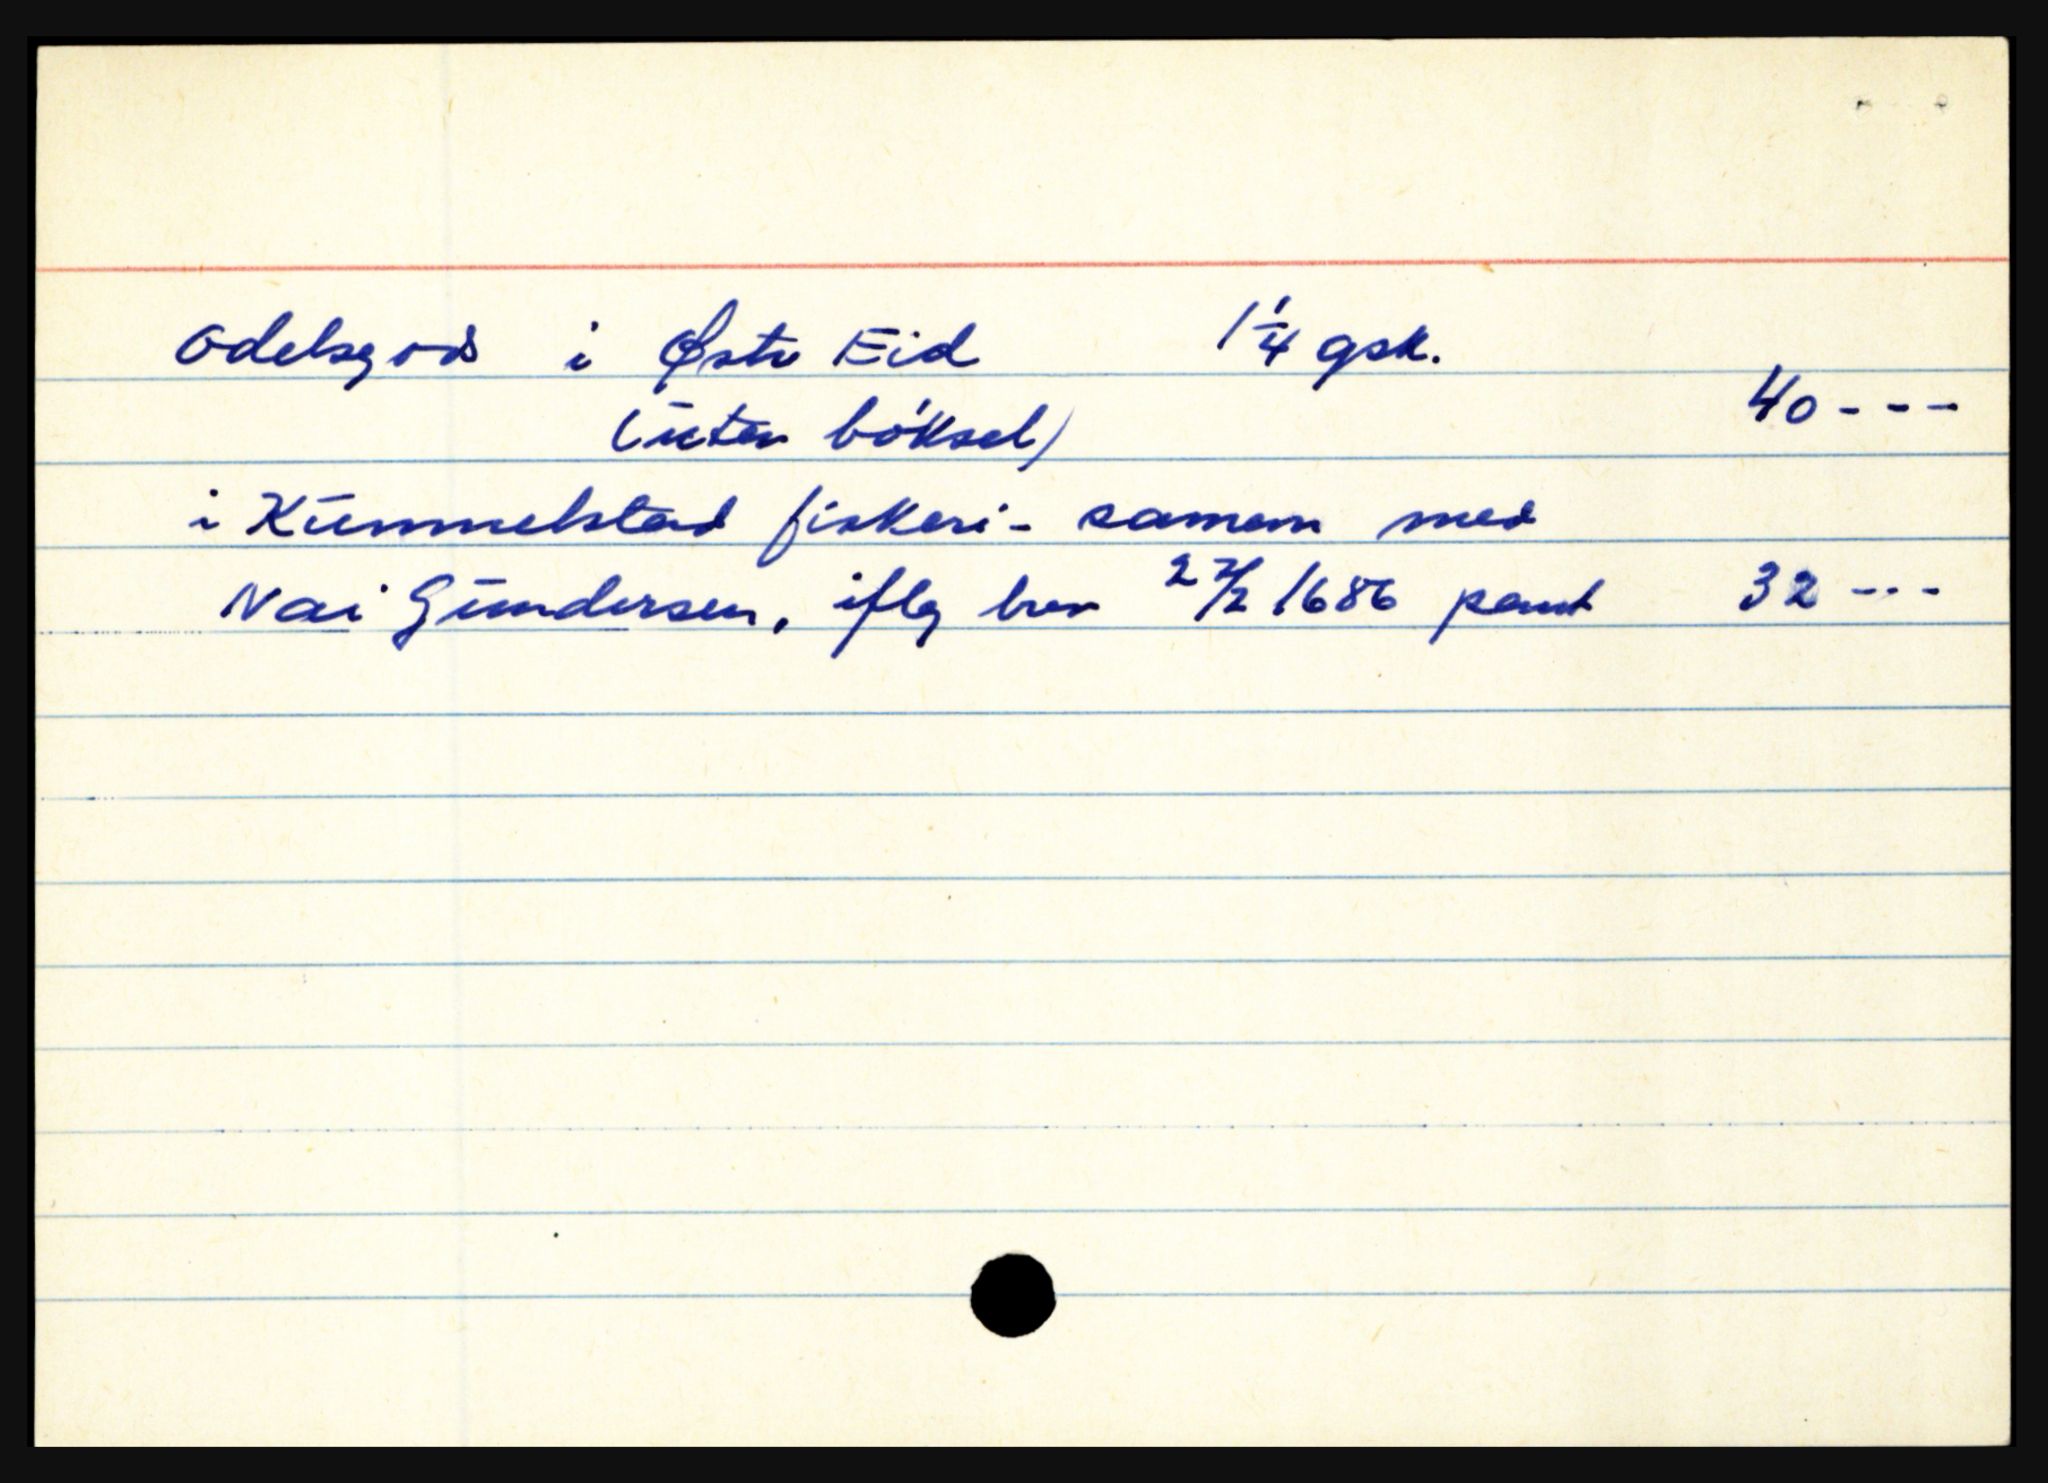 Odelsgods i Østre Eid 1 1/4 gsk.
(uten böksel) 40---
i Kummelstad fiskeri- samem med
Nai Gundersen, iflg brev 22/2 1686 pant 32---